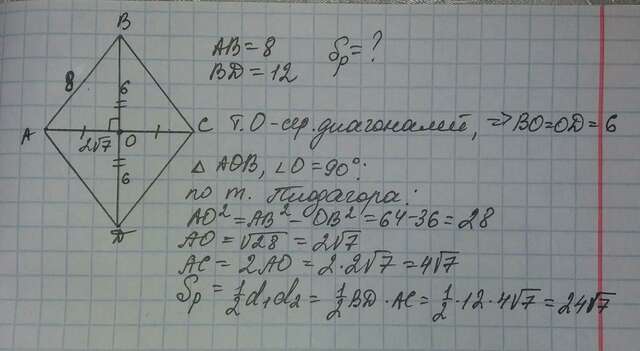 B
AB = 8 Sр = ?
BD = 12
8
6
A 2√7 O C
т. O - ср. диагоналей, => BO = OD = 6
6
D
△ AOB, ∠O = 90°:
по т. Пифагора:
AO² = AB² - OB² = 64 - 36 = 28
AO = √28 = 2√7
AC = 2AO = 2 · 2√7 = 4√7
Sр = 1/2 d₁d₂ = 1/2 BD · AC = 1/2 · 12 · 4√7 = 24√7